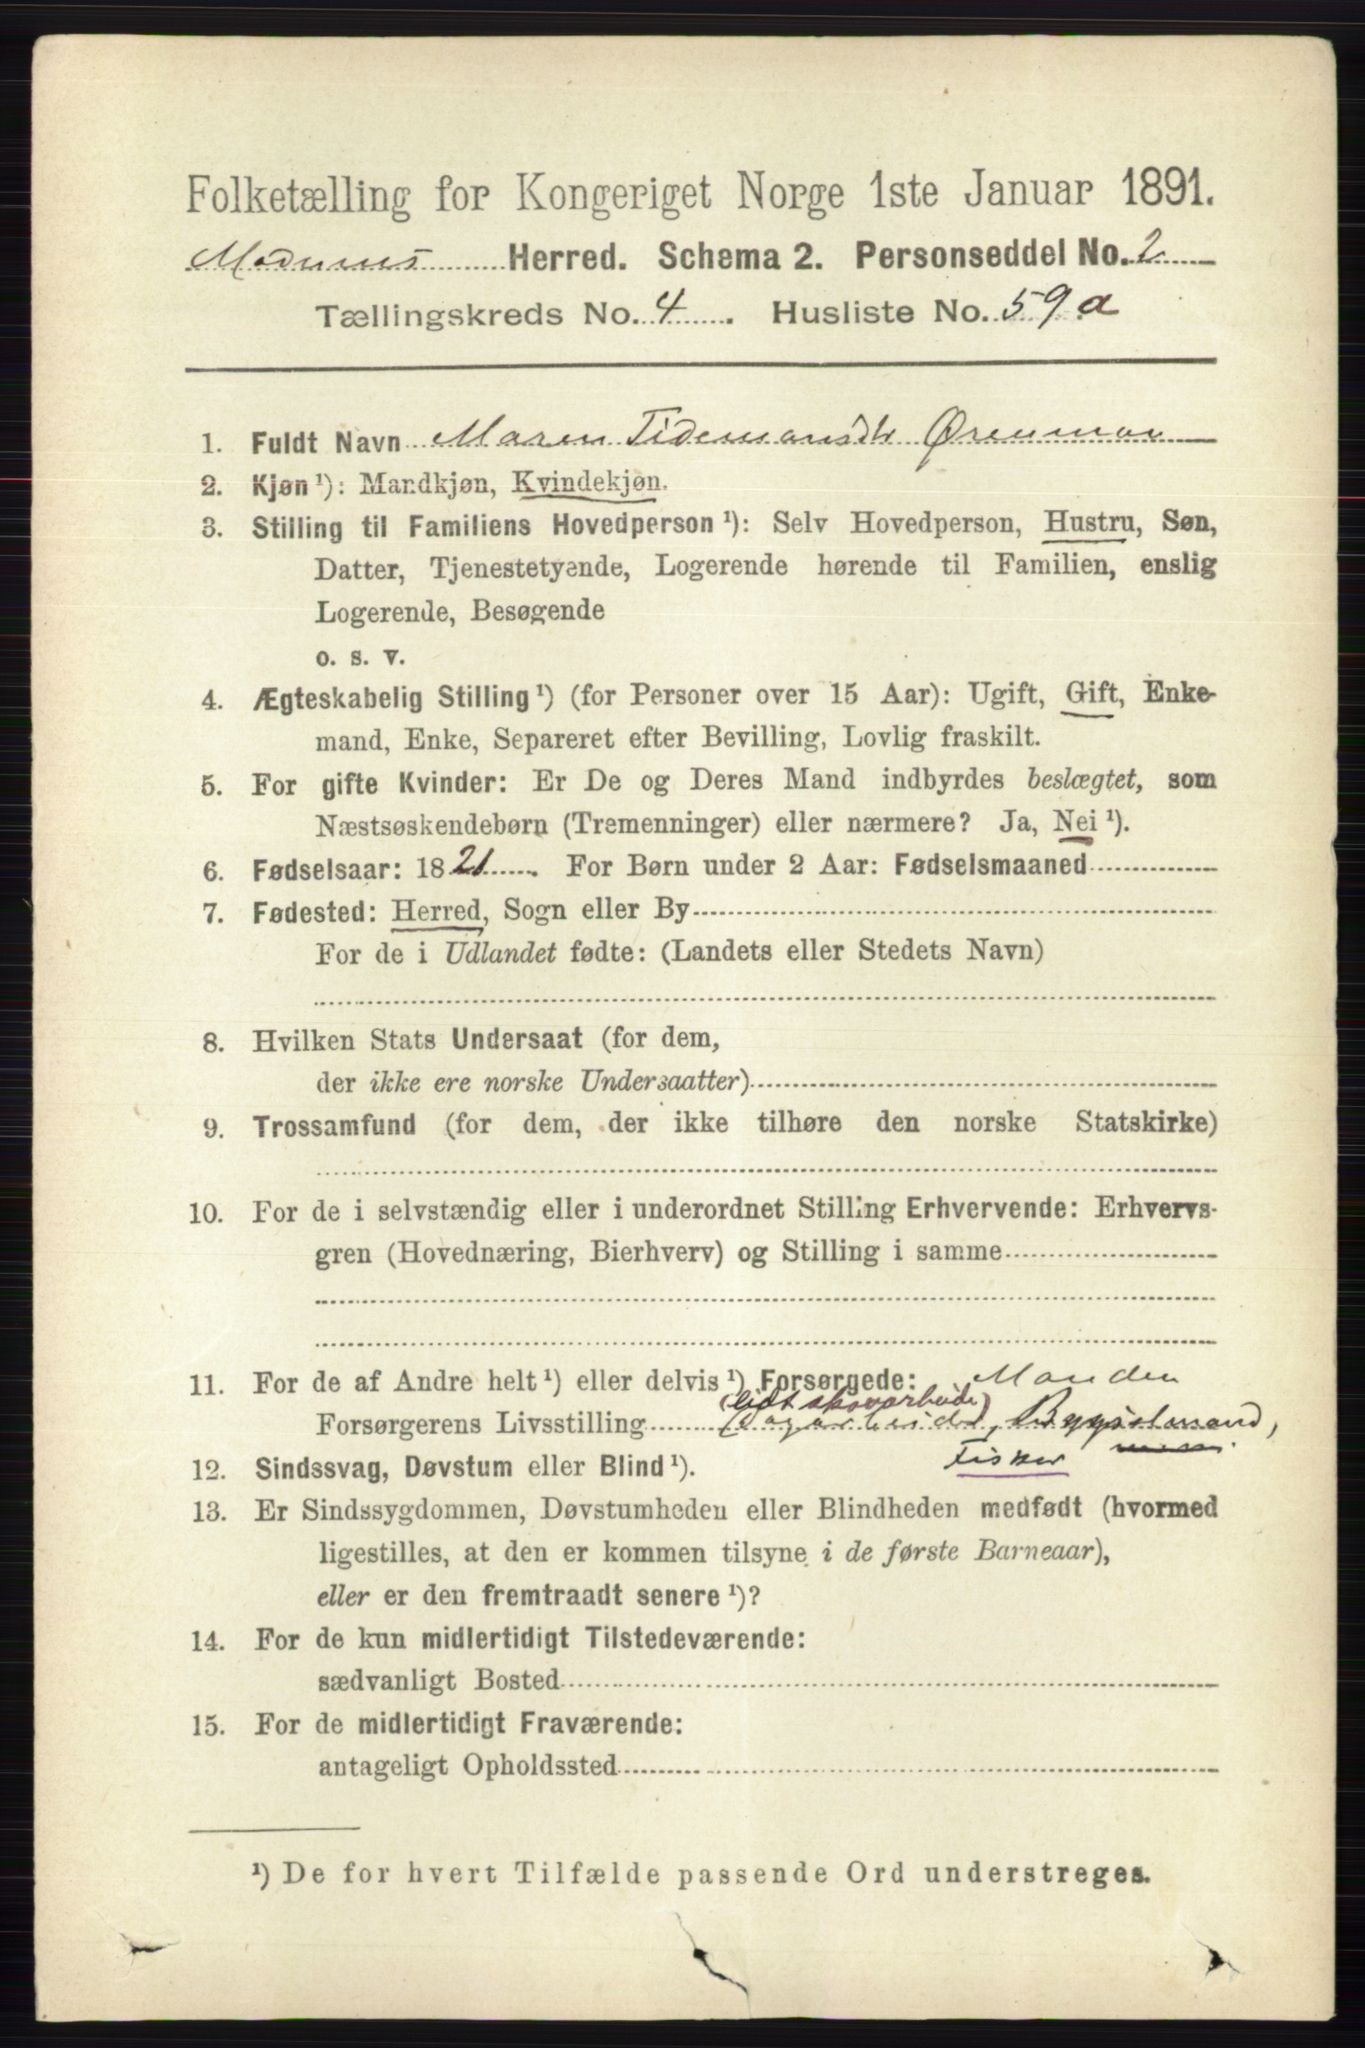 Folketælling for Kongeriget Norge 1ste Januar 1891.
Modums Herred. Schema 2. Personseddel No. 2
Tællingskreds No. 4. Husliste No. 59a
1. Fuldt Navn Maren Tidemansdtr Ørenmoen
2. Kjøn ¹): Mandkjøn, Kvindekjøn.
3. Stilling til Familiens Hovedperson ¹): Selv Hovedperson, Hustru, Søn,
Datter, Tjenestetyende, Logerende hørende til Familien, enslig
Logerende, Besøgende
o. s. v.
4. Ægteskabelig Stilling ¹) (for Personer over 15 Aar): Ugift, Gift, Enke-
mand, Enke, Separeret efter Bevilling, Lovlig fraskilt.
5. For gifte Kvinder: Er De og Deres Mand indbyrdes beslægtet, som
Næstsøskendebørn (Tremenninger) eller nærmere? Ja, Nei ¹).
6. Fødselsaar: 1821. For Børn under 2 Aar: Fødselsmaaned
7. Fødested: Herred, Sogn eller By
For de i Udlandet fødte: (Landets eller Stedets Navn)
8. Hvilken Stats Undersaat (for dem,
der ikke ere norske Undersaatter)
9. Trossamfund (for dem, der ikke tilhøre den norske Statskirke)
10. For de i selvstændig eller i underordnet Stilling Erhvervende: Erhvervs-
gren (Hovednæring, Bierhverv) og Stilling i samme
11. For de af Andre helt ¹) eller delvis ¹) Forsørgede: Manden
(lidt skovarbeide)
Forsørgerens Livsstilling Dagarbeider, Bygselmand,
Fisker
12. Sindssvag, Døvstum eller Blind ¹).
13. Er Sindssygdommen, Døvstumheden eller Blindheden medfødt (hvormed
ligestilles, at den er kommen tilsyne i de første Barneaar),
eller er den fremtraadt senere ¹)?
14. For de kun midlertidigt Tilstedeværende:
sædvanligt Bosted
15. For de midlertidigt Fraværende:
antageligt Opholdssted
¹) De for hvert Tilfælde passende Ord understreges.